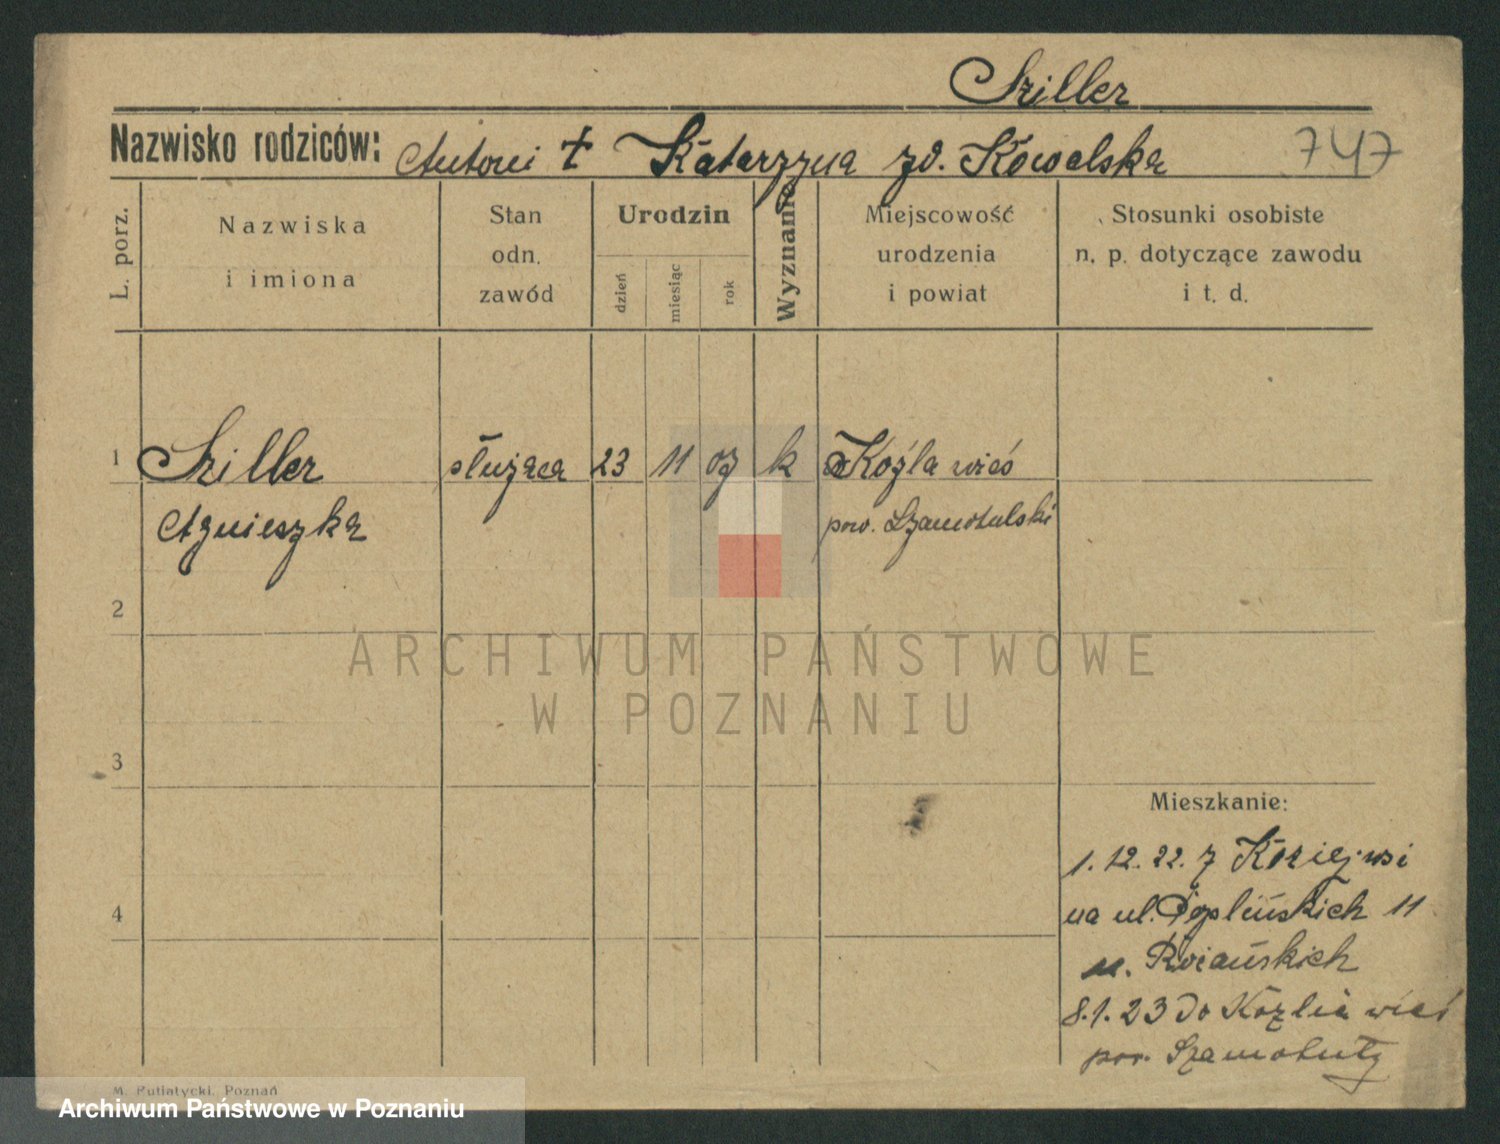 Sziller
Nazwisko rodziców: Antoni † Katarzyna zd. Kowalska 747
L. porz.
Nazwiska
i imiona
Stan
odn.
zawód
Urodzin
dzień
miesiąc
rok
Wyznanie
Miejscowość
urodzenia
i powiat
Stosunki osobiste
n. p. dotyczące zawodu
i t. d.
1 Sziller służąca 23 11 03 k Koźla wieś
Agnieszka pow. Szamotulski
2
ARCHIWUM PAŃSTWOWE
W POZNANIU
3
Mieszkanie:
1.12.22. z Koziejwsi
4
na ul. 11
8.1.23 do Kozlia wieś
pow. Szamotuły
M. Putiatycki. Poznań
Archiwum Państwowe w Poznaniu